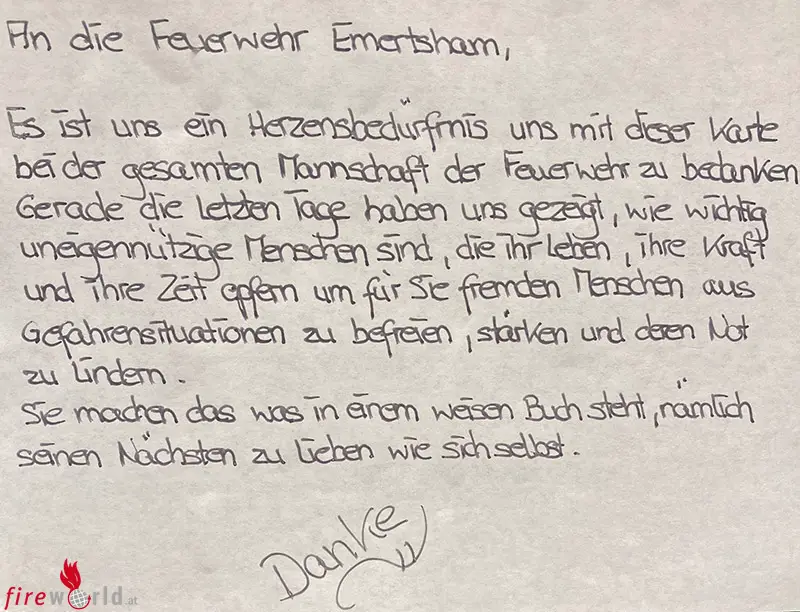 An die Feuerwehr Emertsham,
Es ist uns ein Herzensbedürfnis uns mit dieser Karte
bei der gesamten Mannschaft der Feuerwehr zu bedanken
Gerade die letzten Tage haben uns gezeigt, wie wichtig
uneigennützige Menschen sind, die ihr leben, ihre Kraft
und ihre Zeit opfern um für Sie fremden Menschen aus
Gefahrensituationen zu befreien, stärken und deren Not
zu lindern.
Sie machen das was in einem weisen Buch steht, nämlich
seinen Nächsten zu lieben wie sich selbst.
Danke
fireworld.at